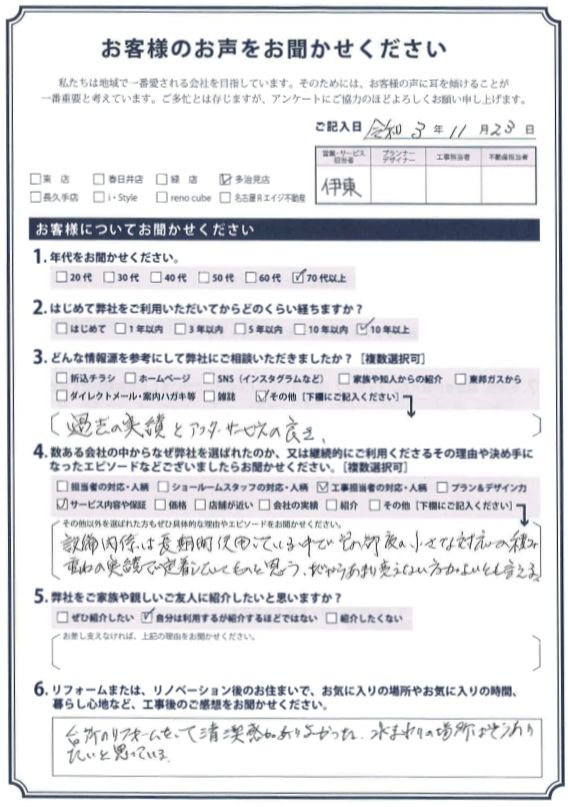 お客様のお声をお聞かせください
私たちは地域で一番愛される会社を目指しています。そのためには、お客様の声に耳を傾けることが
一番重要と考えています。ご多忙とは存じますが、アンケートにご協力のほどよろしくお願い申し上げます。
ご記入日 令和 3 年 11 月 23 日
営業・サービス担当者 プランナーデザイナー 工事担当者 不動産担当者
伊東
□東 店 □春日井店 □緑 店 ☑多治見店
□長久手店 □i・Style □reno cube □名古屋Rエイジ不動産
お客様についてお聞かせください
1. 年代をお聞かせください。
□20代 □30代 □40代 □50代 □60代 ☑70代以上
2. はじめて弊社をご利用いただいてからどのくらい経ちますか?
□はじめて □1年以内 □3年以内 □5年以内 □10年以内 ☑10年以上
3. どんな情報源を参考にして弊社にご相談いただきましたか?[複数選択可]
□折込チラシ □ホームページ □SNS(インスタグラムなど) □家族や知人からの紹介 □東邦ガスから
□ダイレクトメール・案内ハガキ等 □雑誌 ☑その他[下欄にご記入ください]
過去の実績とアフターサービスの良さ、
4. 数ある会社の中からなぜ弊社を選ばれたのか、又は継続的にご利用くださるその理由や決め手に
なったエピソードなどございましたらお聞かせください。[複数選択可]
□担当者の対応・人柄 □ショールームスタッフの対応・人柄 ☑工事担当者の対応・人柄 □プラン&デザイン力
☑サービス内容や保証 □価格 □店舗が近い □会社の実績 □紹介 □その他[下欄にご記入ください]
その他以外を選ばれた方もぜひ具体的な理由やエピソードをお聞かせください。
設備関係は長期的使用している中でその都度の小さな対応の積み
重ねの実績で定着していくものと思う、だからあまり変えない方がよいとも言える
5. 弊社をご家族や親しいご友人に紹介したいと思いますか?
□ぜひ紹介したい ☑自分は利用するが紹介するほどではない □紹介したくない
お差し支えなければ、上記の理由をお聞かせください。
6. リフォームまたは、リノベーション後のお住まいで、お気に入りの場所やお気に入りの時間、
暮らし心地など、工事後のご感想をお聞かせください。
台所のリフォームをして清潔感がありよかった。水まわりの場所はそうあり
たいと思っている